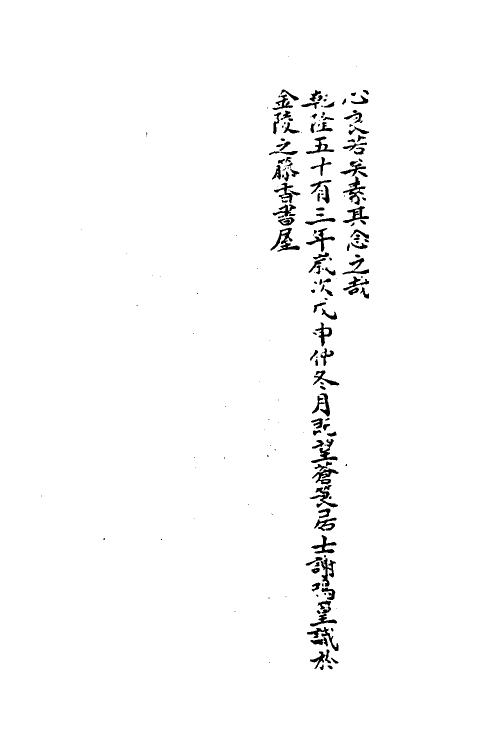 心良苦矣素其念之哉
乾隆五十有三年歲次戊申仲冬月既望蒼筤居士謝鳴篁識於
金陵之藤香書屋